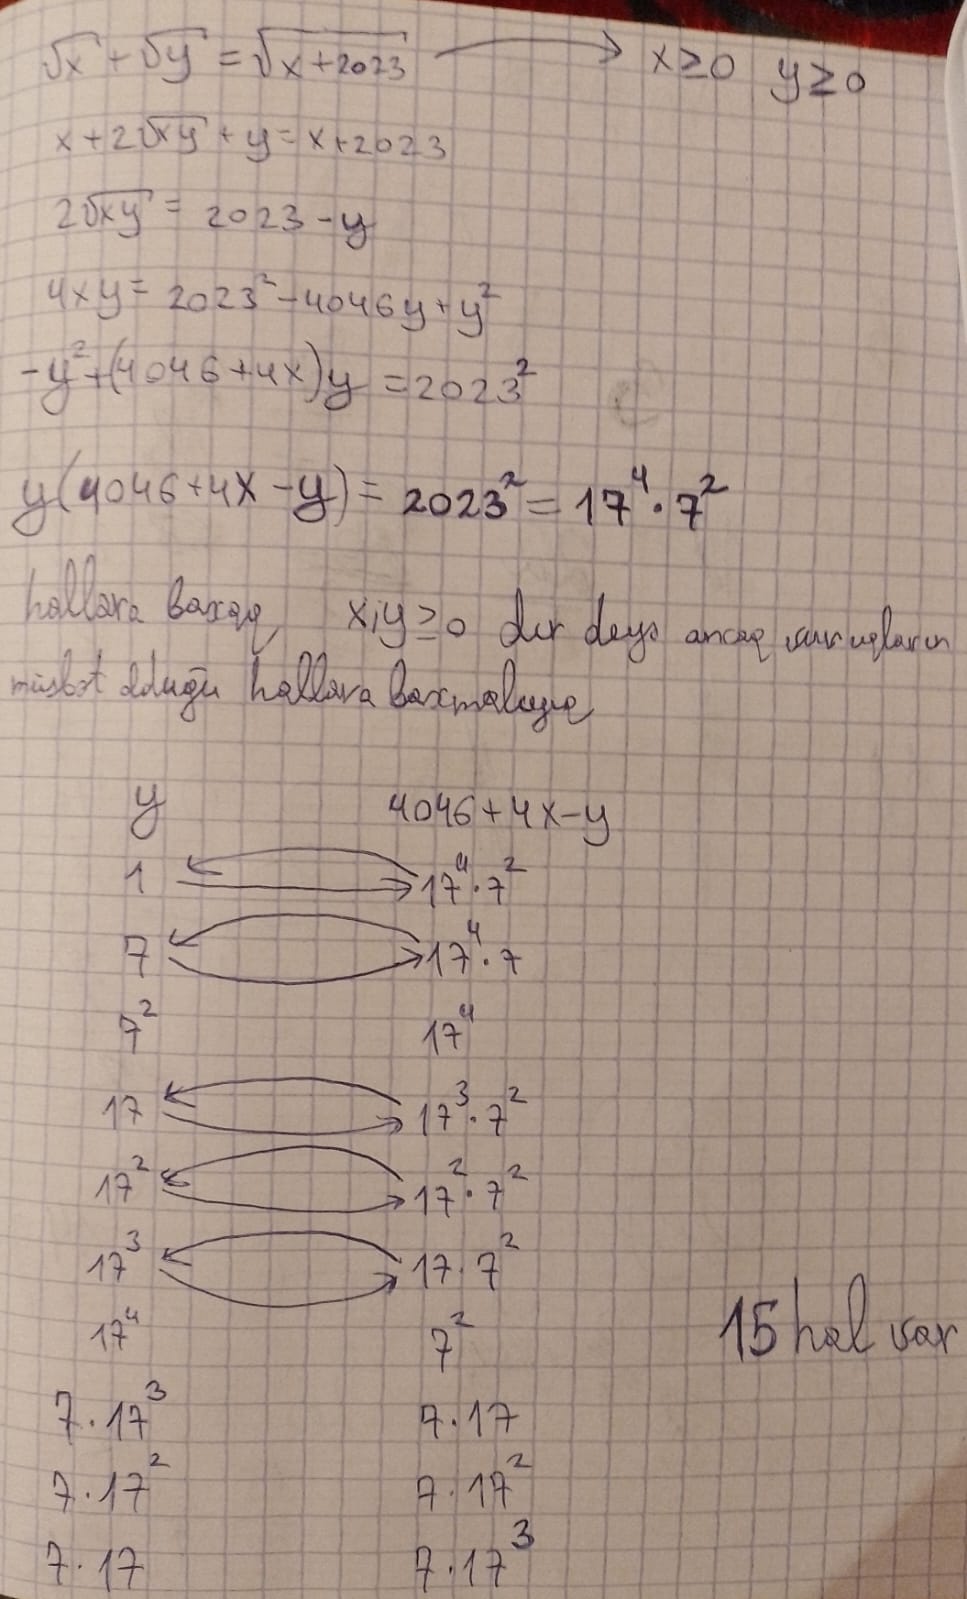 √x + √y = √x+2023 → x ≥ 0 y ≥ 0
x + 2√xy + y = x + 2023
2√xy = 2023 - y
4xy = 2023² - 4046y + y²
-y² + (4046 + 4x)y = 2023²
y(4046 + 4x - y) = 2023² = 17⁴ · 7²
hallara baxaq x;y ≥ 0 dır deyə ancaq vuruqların
müsbət olduğu hallara baxmalıyıq
y 4046 + 4x - y
1 17⁴ · 7²
7 17⁴ · 7
7² 17⁴
17 17³ · 7²
17² 17² · 7²
17³ 17 · 7²
17⁴ 7²
15 hal var
7 · 17³ 7 · 17
7 · 17² 7 · 17²
7 · 17 7 · 17³